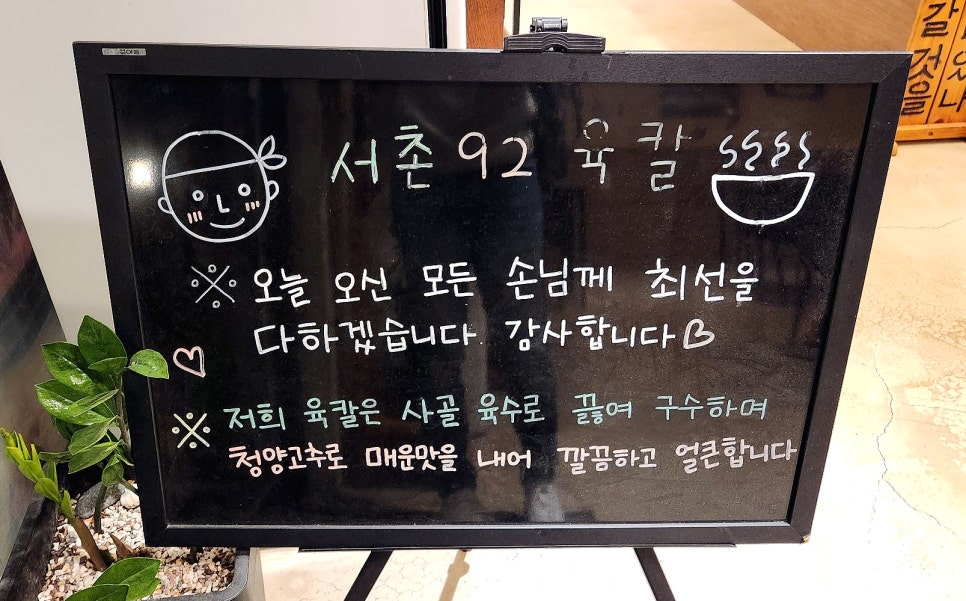 서촌 92 육칼
※ 오늘 오신 모든 손님께 최선을
다하겠습니다. 감사합니다♡
※ 저희 육칼은 사골 육수로 끓여 구수하며
청양고추로 매운맛을 내어 깔끔하고 얼큰합니다
갈 것을
있나